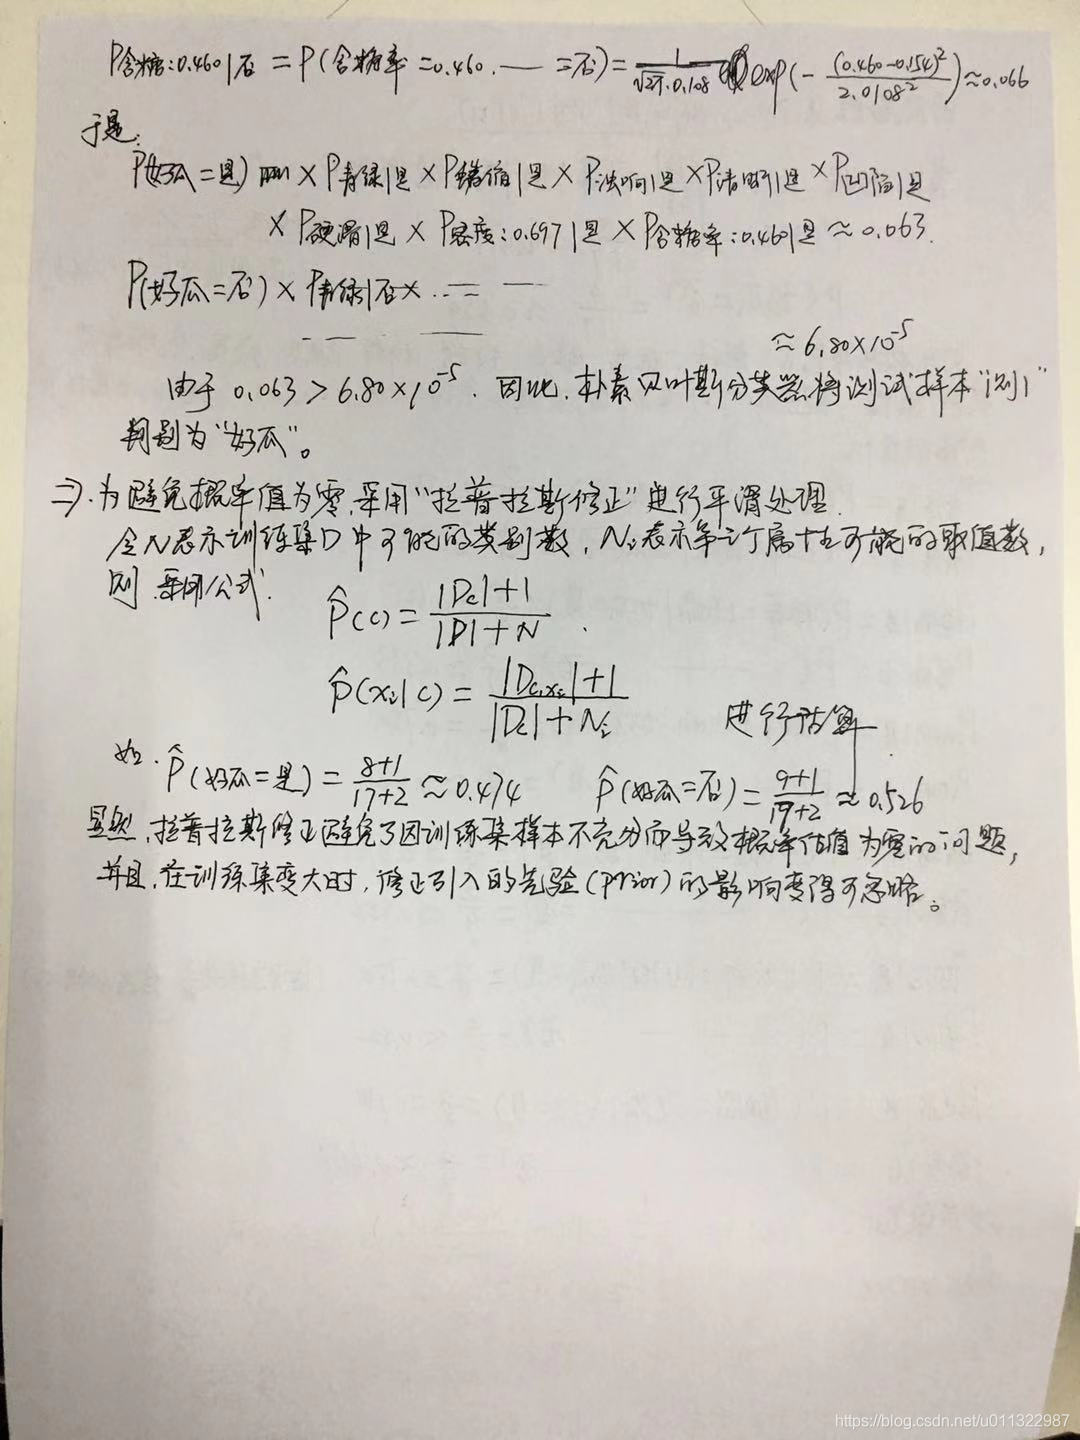 P含糖:0.460|否 = P(含糖率=0.460. —— =否) = 1/(√2π·0.108) exp(-(0.460-0.154)²/2.0108²) ≈0.066
于是.
P(好瓜=是) × P青绿|是 × P蜷缩|是 × P浊响|是 × P清晰|是 × P凹陷|是
× P硬滑|是 × P密度:0.697|是 × P含糖率:0.460|是 ≈ 0.063.
P(好瓜=否) × P青绿|否 × ...
≈ 6.80×10⁻⁵
由于 0.063 > 6.80×10⁻⁵. 因此. 朴素贝叶斯分类器将测试样本“测1”
判别为“好瓜”。
⇒. 为避免概率值为零,采用“拉普拉斯修正”进行平滑处理.
令N表示训练集D中可能的类别数, Nᵢ表示第i个属性可能的取值数,
则 采用公式.
P̂(c) = (|Dc|+1)/(|D|+N) .
P̂(xᵢ|c) = (|Dc,xᵢ|+1)/(|Dc|+Nᵢ) 进行估算.
如. P̂(好瓜=是) = (8+1)/(17+2) ≈ 0.474 P̂(好瓜=否) = (9+1)/(19+2) ≈ 0.526
显然, 拉普拉斯修正避免了因训练集样本不充分而导致概率估值为零的问题,
并且, 在训练集变大时, 修正引入的先验(prior)的影响变得可忽略。
https://blog.csdn.net/u011322987